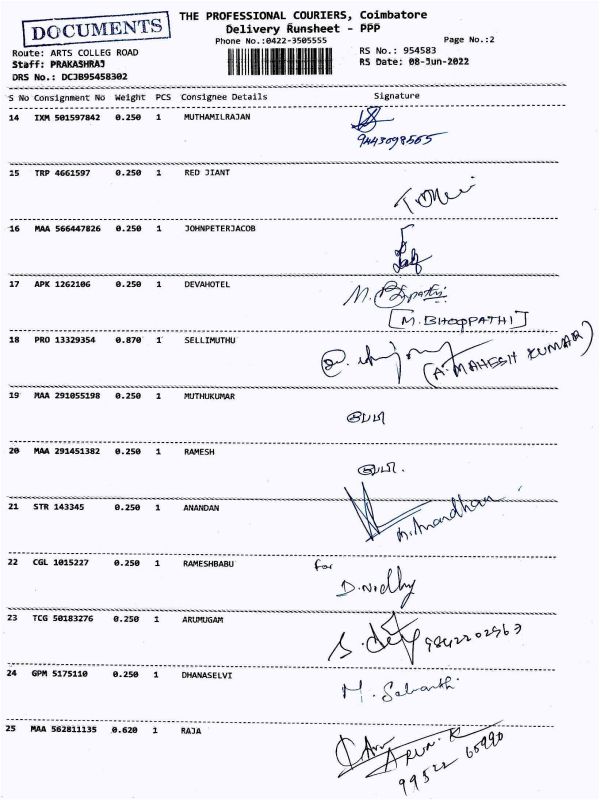 DOCUMENTS
THE PROFESSIONAL COURIERS, Coimbatore
Delivery Runsheet - PPP
Phone No.:0422-3505555
Page No.:2
Route: ARTS COLLEG ROAD
RS No.: 954583
Staff: PRAKASHRAJ
RS Date: 08-Jun-2022
DRS No.: DCJB95458302
S No Consignment No Weight PCS Consignee Details Signature
14 IXM 501597842 0.250 1 MUTHAMILRAJAN
9443098565
15 TRP 4661597 0.250 1 RED JIANT
16 MAA 566447826 0.250 1 JOHNPETERJACOB
17 APK 1262106 0.250 1 DEVAHOTEL
[M. BHOOPATHI]
18 PRO 13329354 0.870 1 SELLIMUTHU
(A. MAHESH KUMAR)
19 MAA 291055198 0.250 1 MUTHUKUMAR
20 MAA 291451382 0.250 1 RAMESH
21 STR 143345 0.250 1 ANANDAN
Anandhan
22 CGL 1015227 0.250 1 RAMESHBABU
for
D. Nidhy
23 TCG 50183276 0.250 1 ARUMUGAM
9842202963
24 GPM 5175110 0.250 1 DHANASELVI
25 MAA 562811135 0.620 1 RAJA
ARUN. K
99522 60990